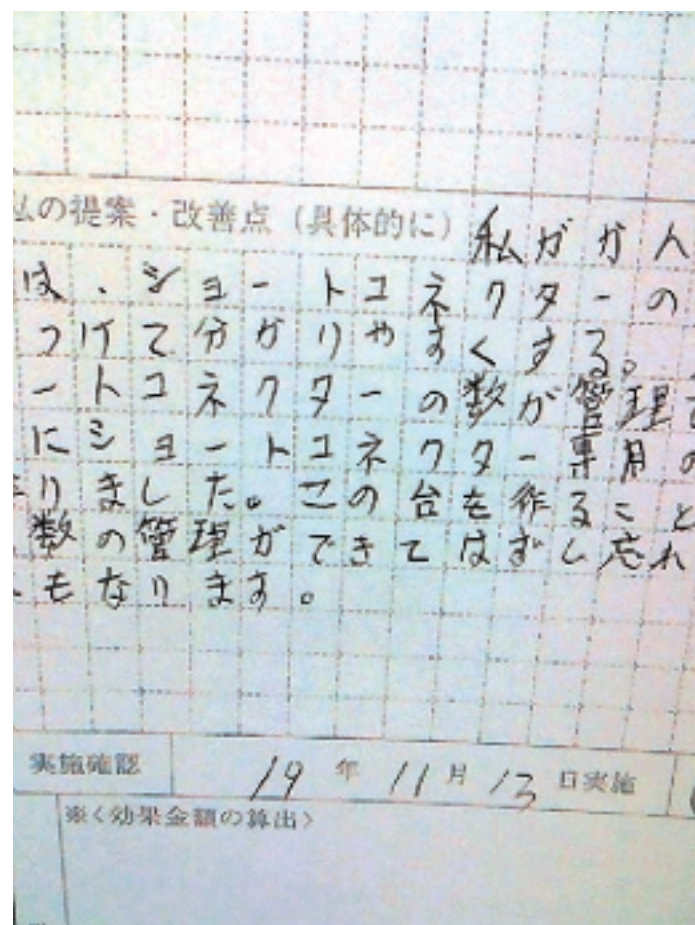 私の提案・改善点(具体的に) 私がか人
は、ショートコネクターの
つけて分かりやすくする。
ートコネクターの数が管理
にショートコネクター専用の
りました。この台を作ること
数の管理ができてはずし忘れ
もなります。
実施確認 19年11月13日実施
※<効果金額の算出>